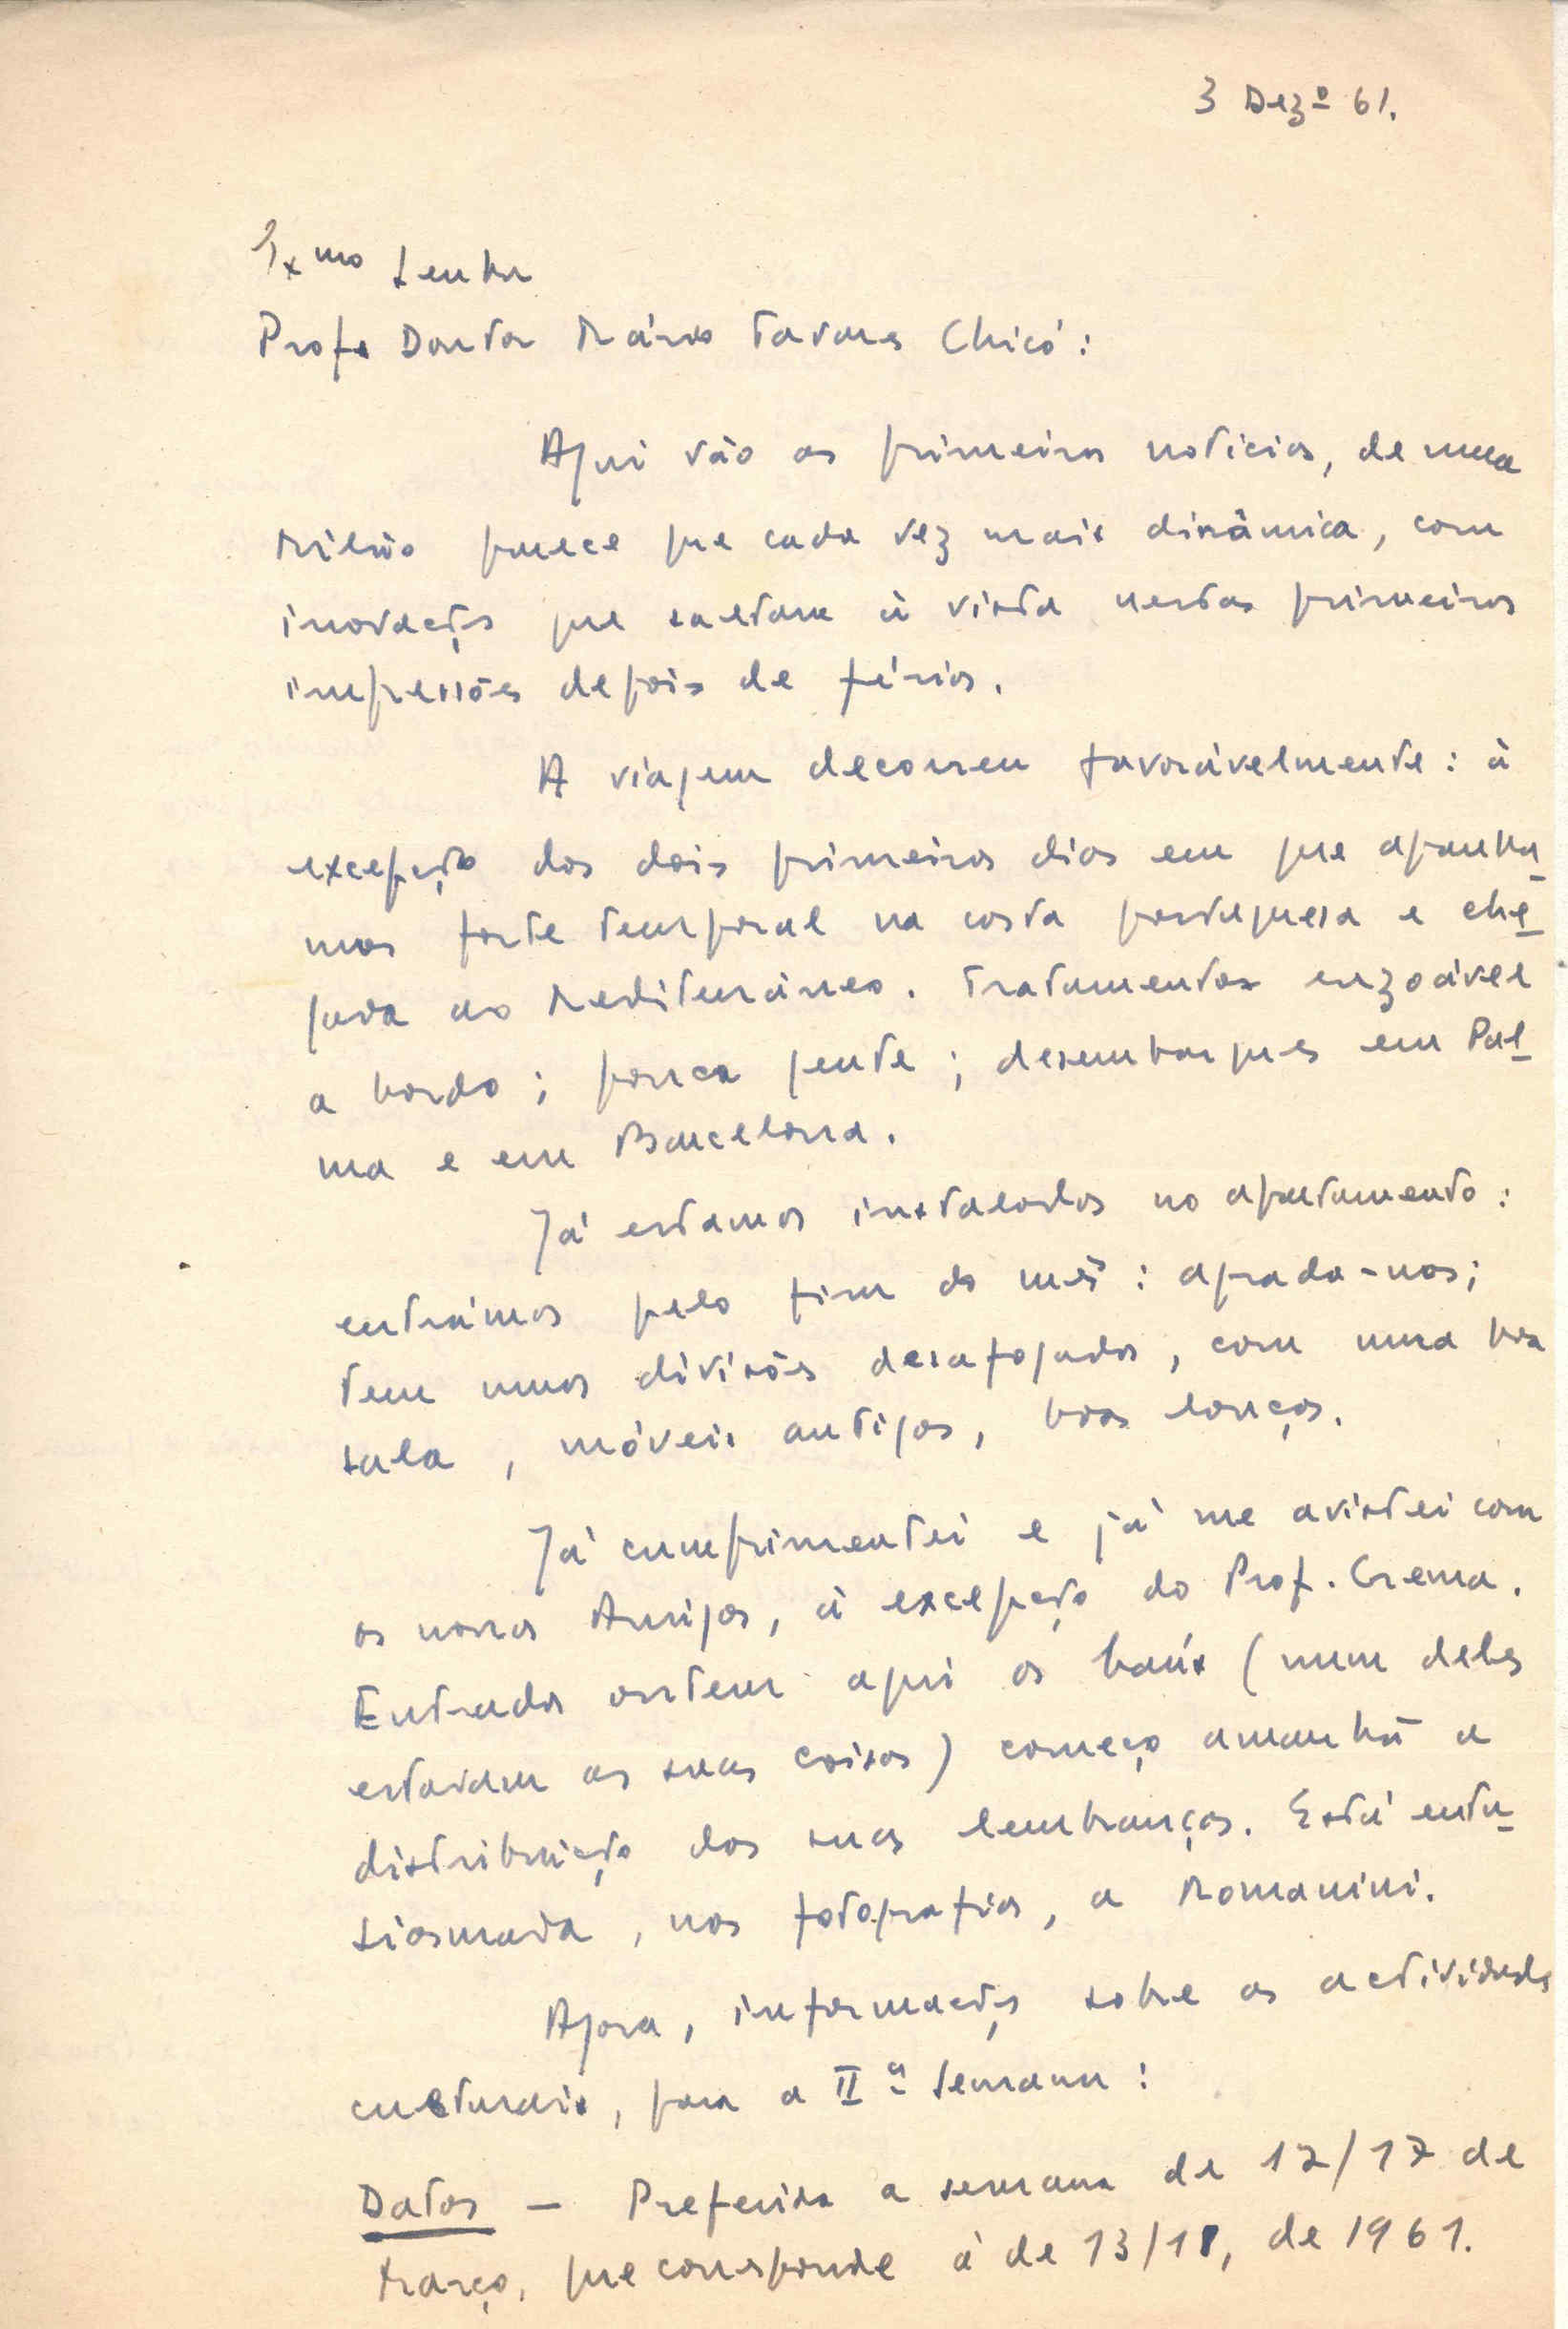 3 Dezº 61.
Exmo Senhor
Prof. Doutor Mário Tavares Chicó:
Aqui vão as primeiras notícias, de uma
Milão parece que cada vez mais dinâmica, com
inovações que saltam à vista nestas primeiras
impressões depois de férias.
A viagem decorreu favoràvelmente: à
excepção dos dois primeiros dias em que apanha-
mos forte temporal na costa portuguesa e che-
gada ao Mediterrâneo. Tratamentos
a bordo; pouca gente; desembarques em Pal-
ma e em Barcelona.
Já estamos instalados no apartamento:
entrámos pelo fim do mês: agrada-nos;
tem umas divisões desafogadas, com uma boa
sala, móveis antigos, boas louças.
Já cumprimentei e já me avistei com
os nossos Amigos, à excepção do Prof. Crema.
Entrados ontem aqui os baús (num deles
estavam as suas coisas) começo amanhã a
distribuição das suas lembranças. Está entu-
siasmada, nas fotografias, a Romanini.
Agora, informações sobre as actividades
culturais, para a IIª Semana:
Datas - Preferida a semana de 12/17 de
Março, que corresponde à de 13/18, de 1961.